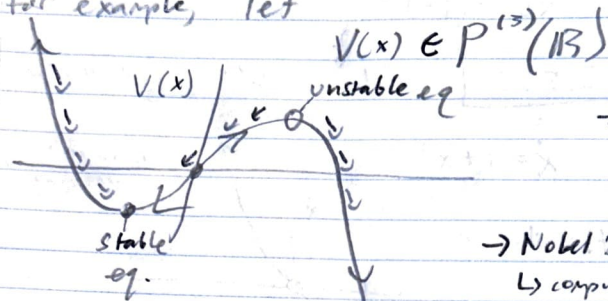 for example, let
V(x) ∈ P⁽³⁾(ℝ)
V(x)
unstable eq
stable
eq.
→ Nobel
↳ compu